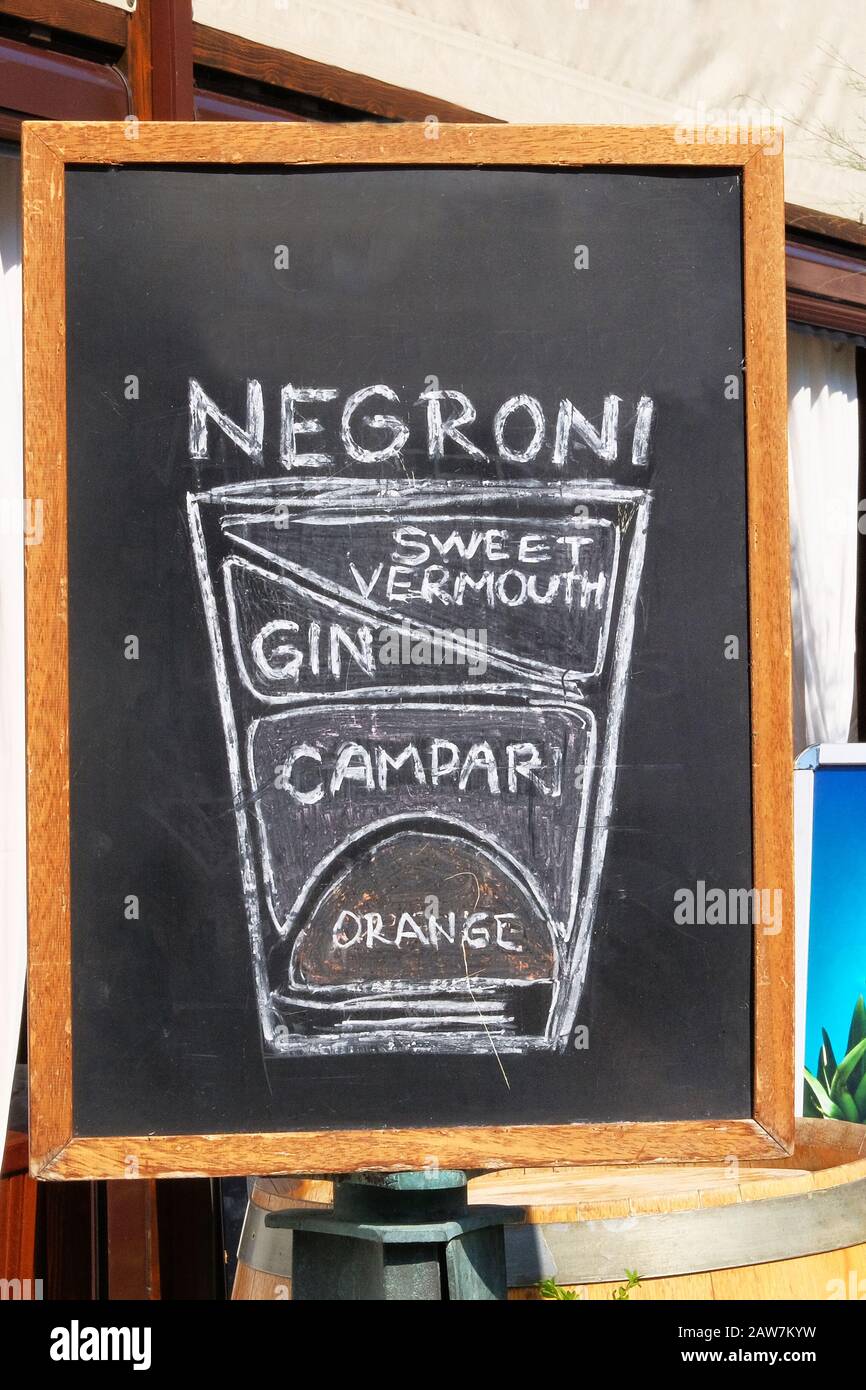 NEGRONI
SWEET
VERMOUTH
GIN
CAMPARI
ORANGE
alamy
alamy
Image ID: 2AW7KYW
www.alamy.com